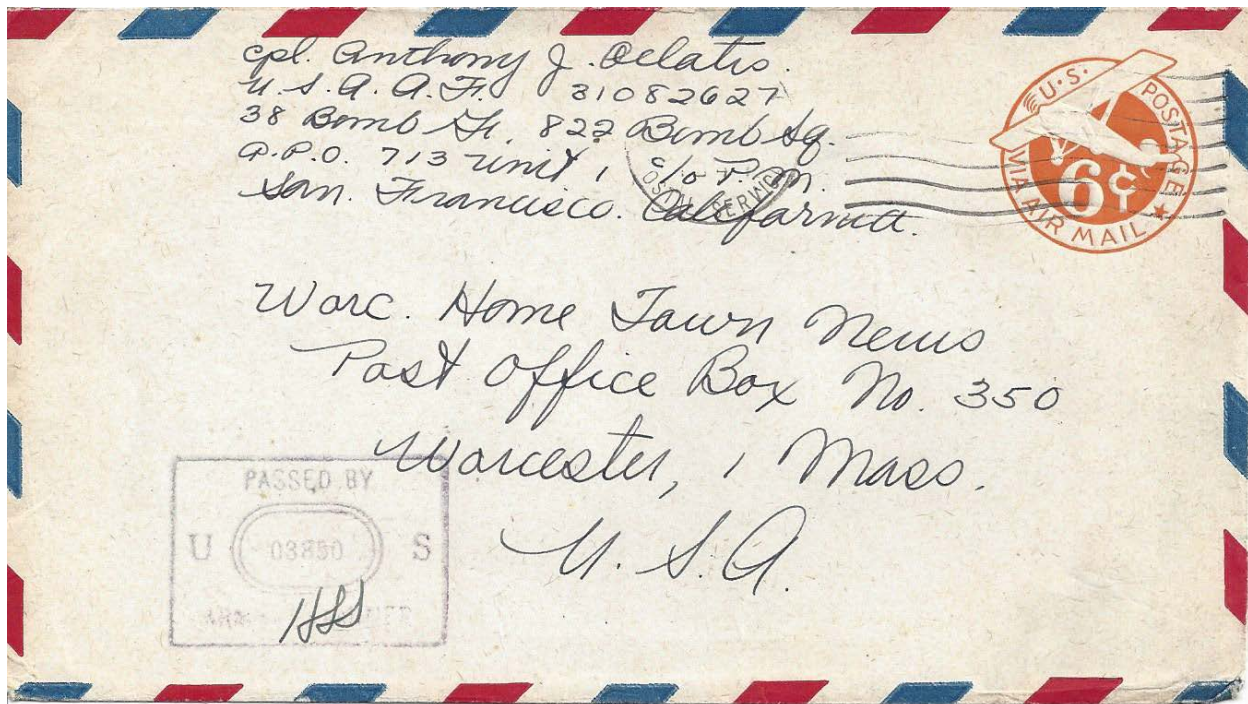 Cpl. Anthony J.
U.S.A.A.F. 31082627
38 Bomb Gr. 822 Bomb Sq.
A.P.O. 713 Unit 1 c/o P.M.
San. Francisco. California.
U.S. POSTAGE
6¢
VIA AIR MAIL
POSTAL SERVICE
Worc. Home Town News
Post Office Box No. 350
Worcester, 1 Mass.
U.S.A.
PASSED BY
U S
ARMY EXAMINER